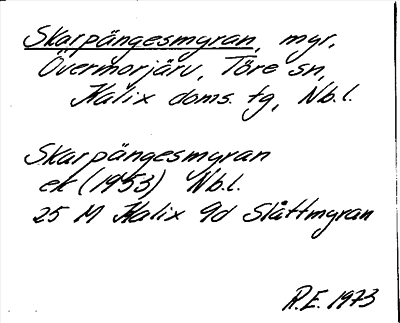 Skarpängesmyran, myr,
Övermorjärv, Töre sn,
Kalix doms. tg, Nb.l.
Skarpängesmyran
ek (1953) Nb.l.
25 M Kalix 9d Slåttmyran
R.E. 1973